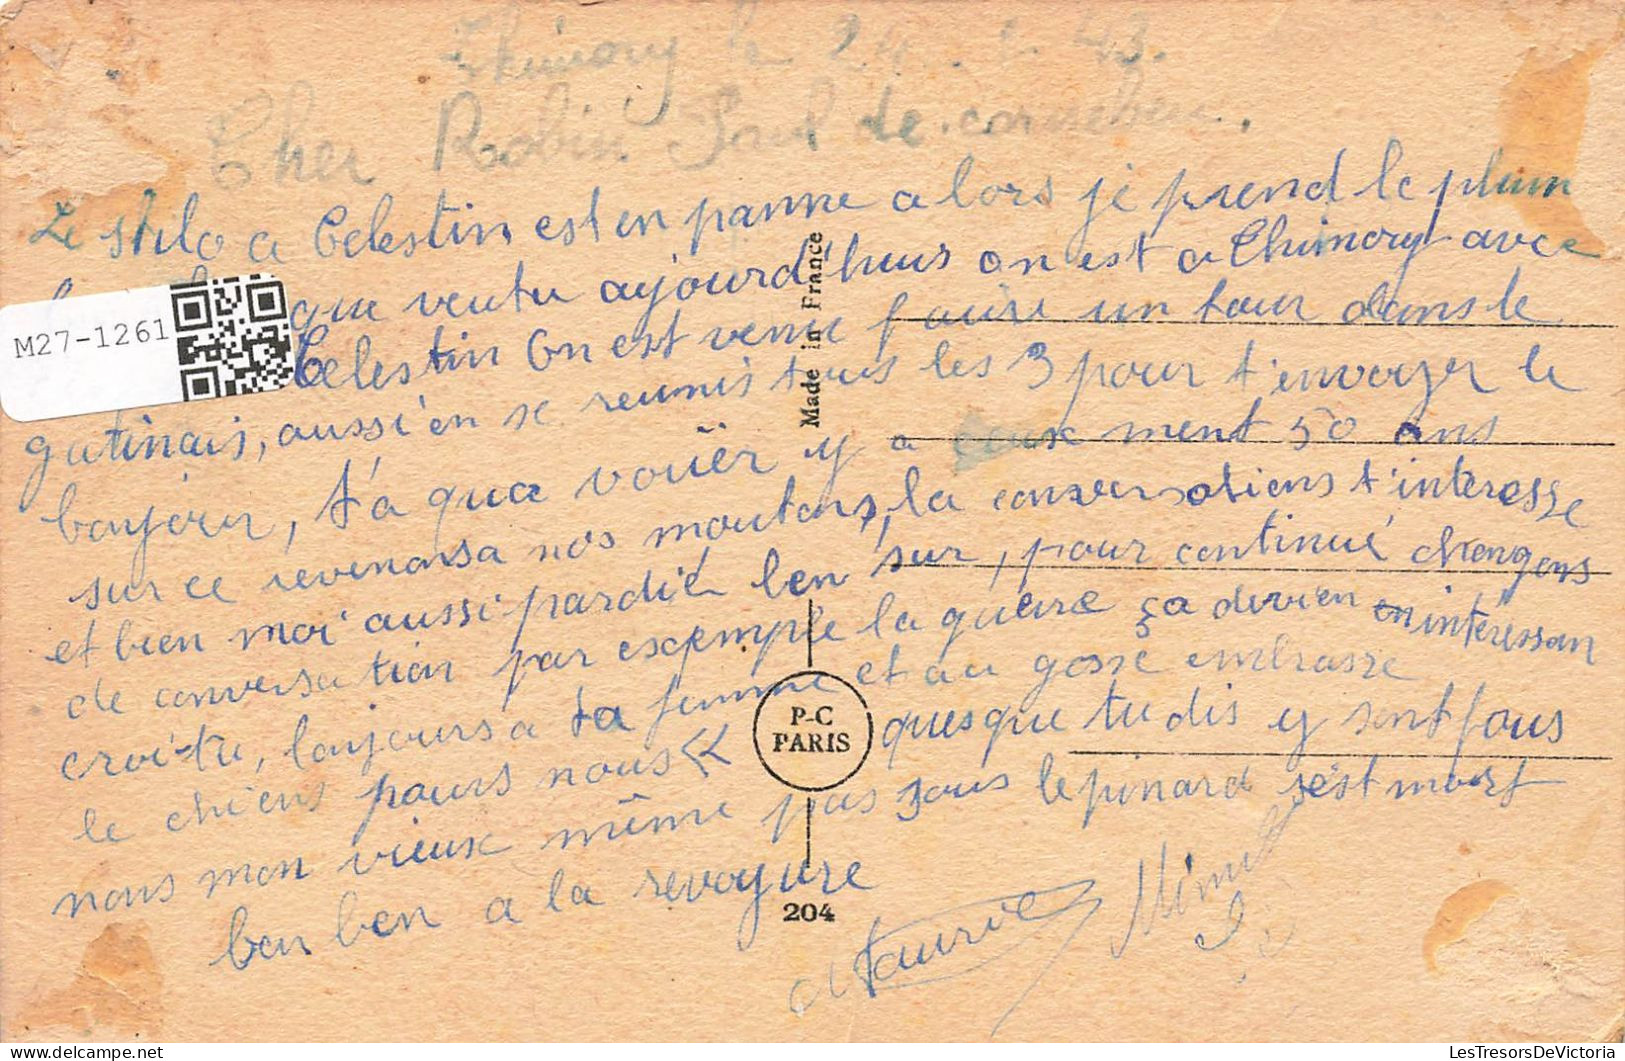 Thimory le 24 1 43.
Cher Robin Paul de
Le stilo a Celestin est en panne alors je prend le plum
que ventu ajourd'huis on est a Thimory avec
Celestin On est venu faire un tour dans le
gatinais, aussi en se reunis tous les 3 pour t'envoyer le
bonjour, t'a qua vouër y a ment 50 ans
sur ce revenons a nos moutons, la conversations t'interesse
et bien moi aussi pardié ben sur, pour continué changons
de conversation par exemple la guere ça devien interessan
croi-tu, toujours a ta femme et au gosse embrasse
le chiens pours nous quesque tu dis y sont fous
nous mon vieux même pas sous le pinard s'est mort
bon ben a la revoyure
Made in France
P-C
PARIS
204
M27-1261
LesTresorsDeVictoria